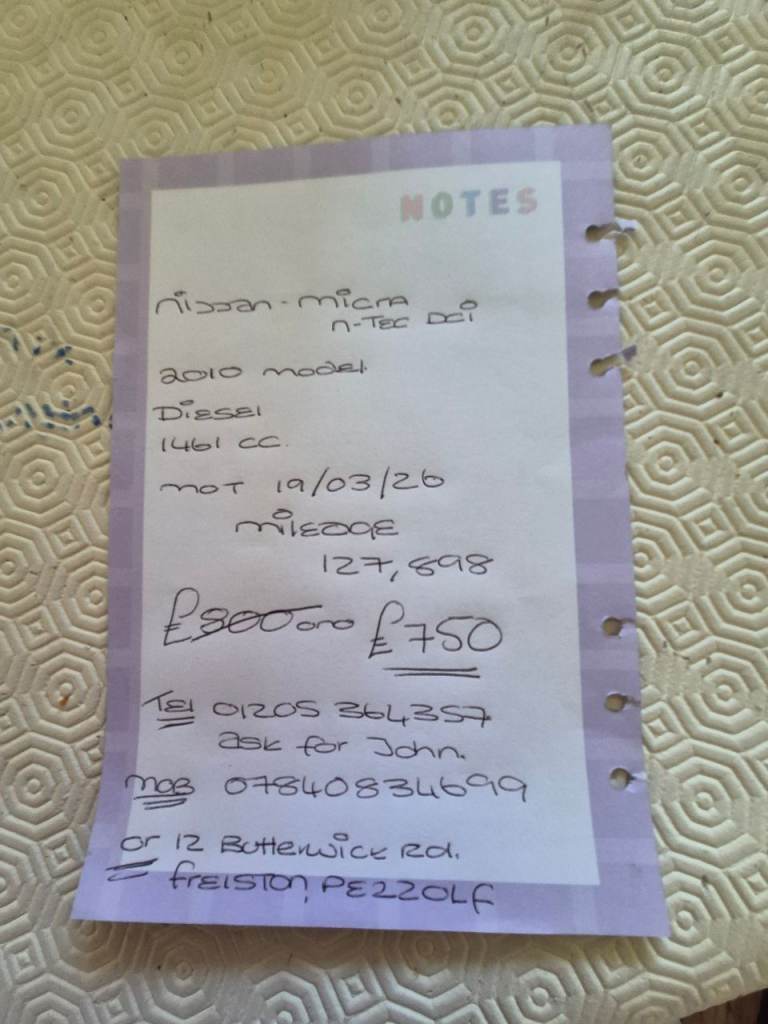 NOTES
Nissan - Micra
N-TEC DCi
2010 model.
Diesel
1461 CC.
MOT 19/03/26
mileage
127,898
£800 ono £750
Tel 01205 364357
ask for John.
MOB 07840834699
or 12 Butterwick Rd.
Freiston, PE22 0LF